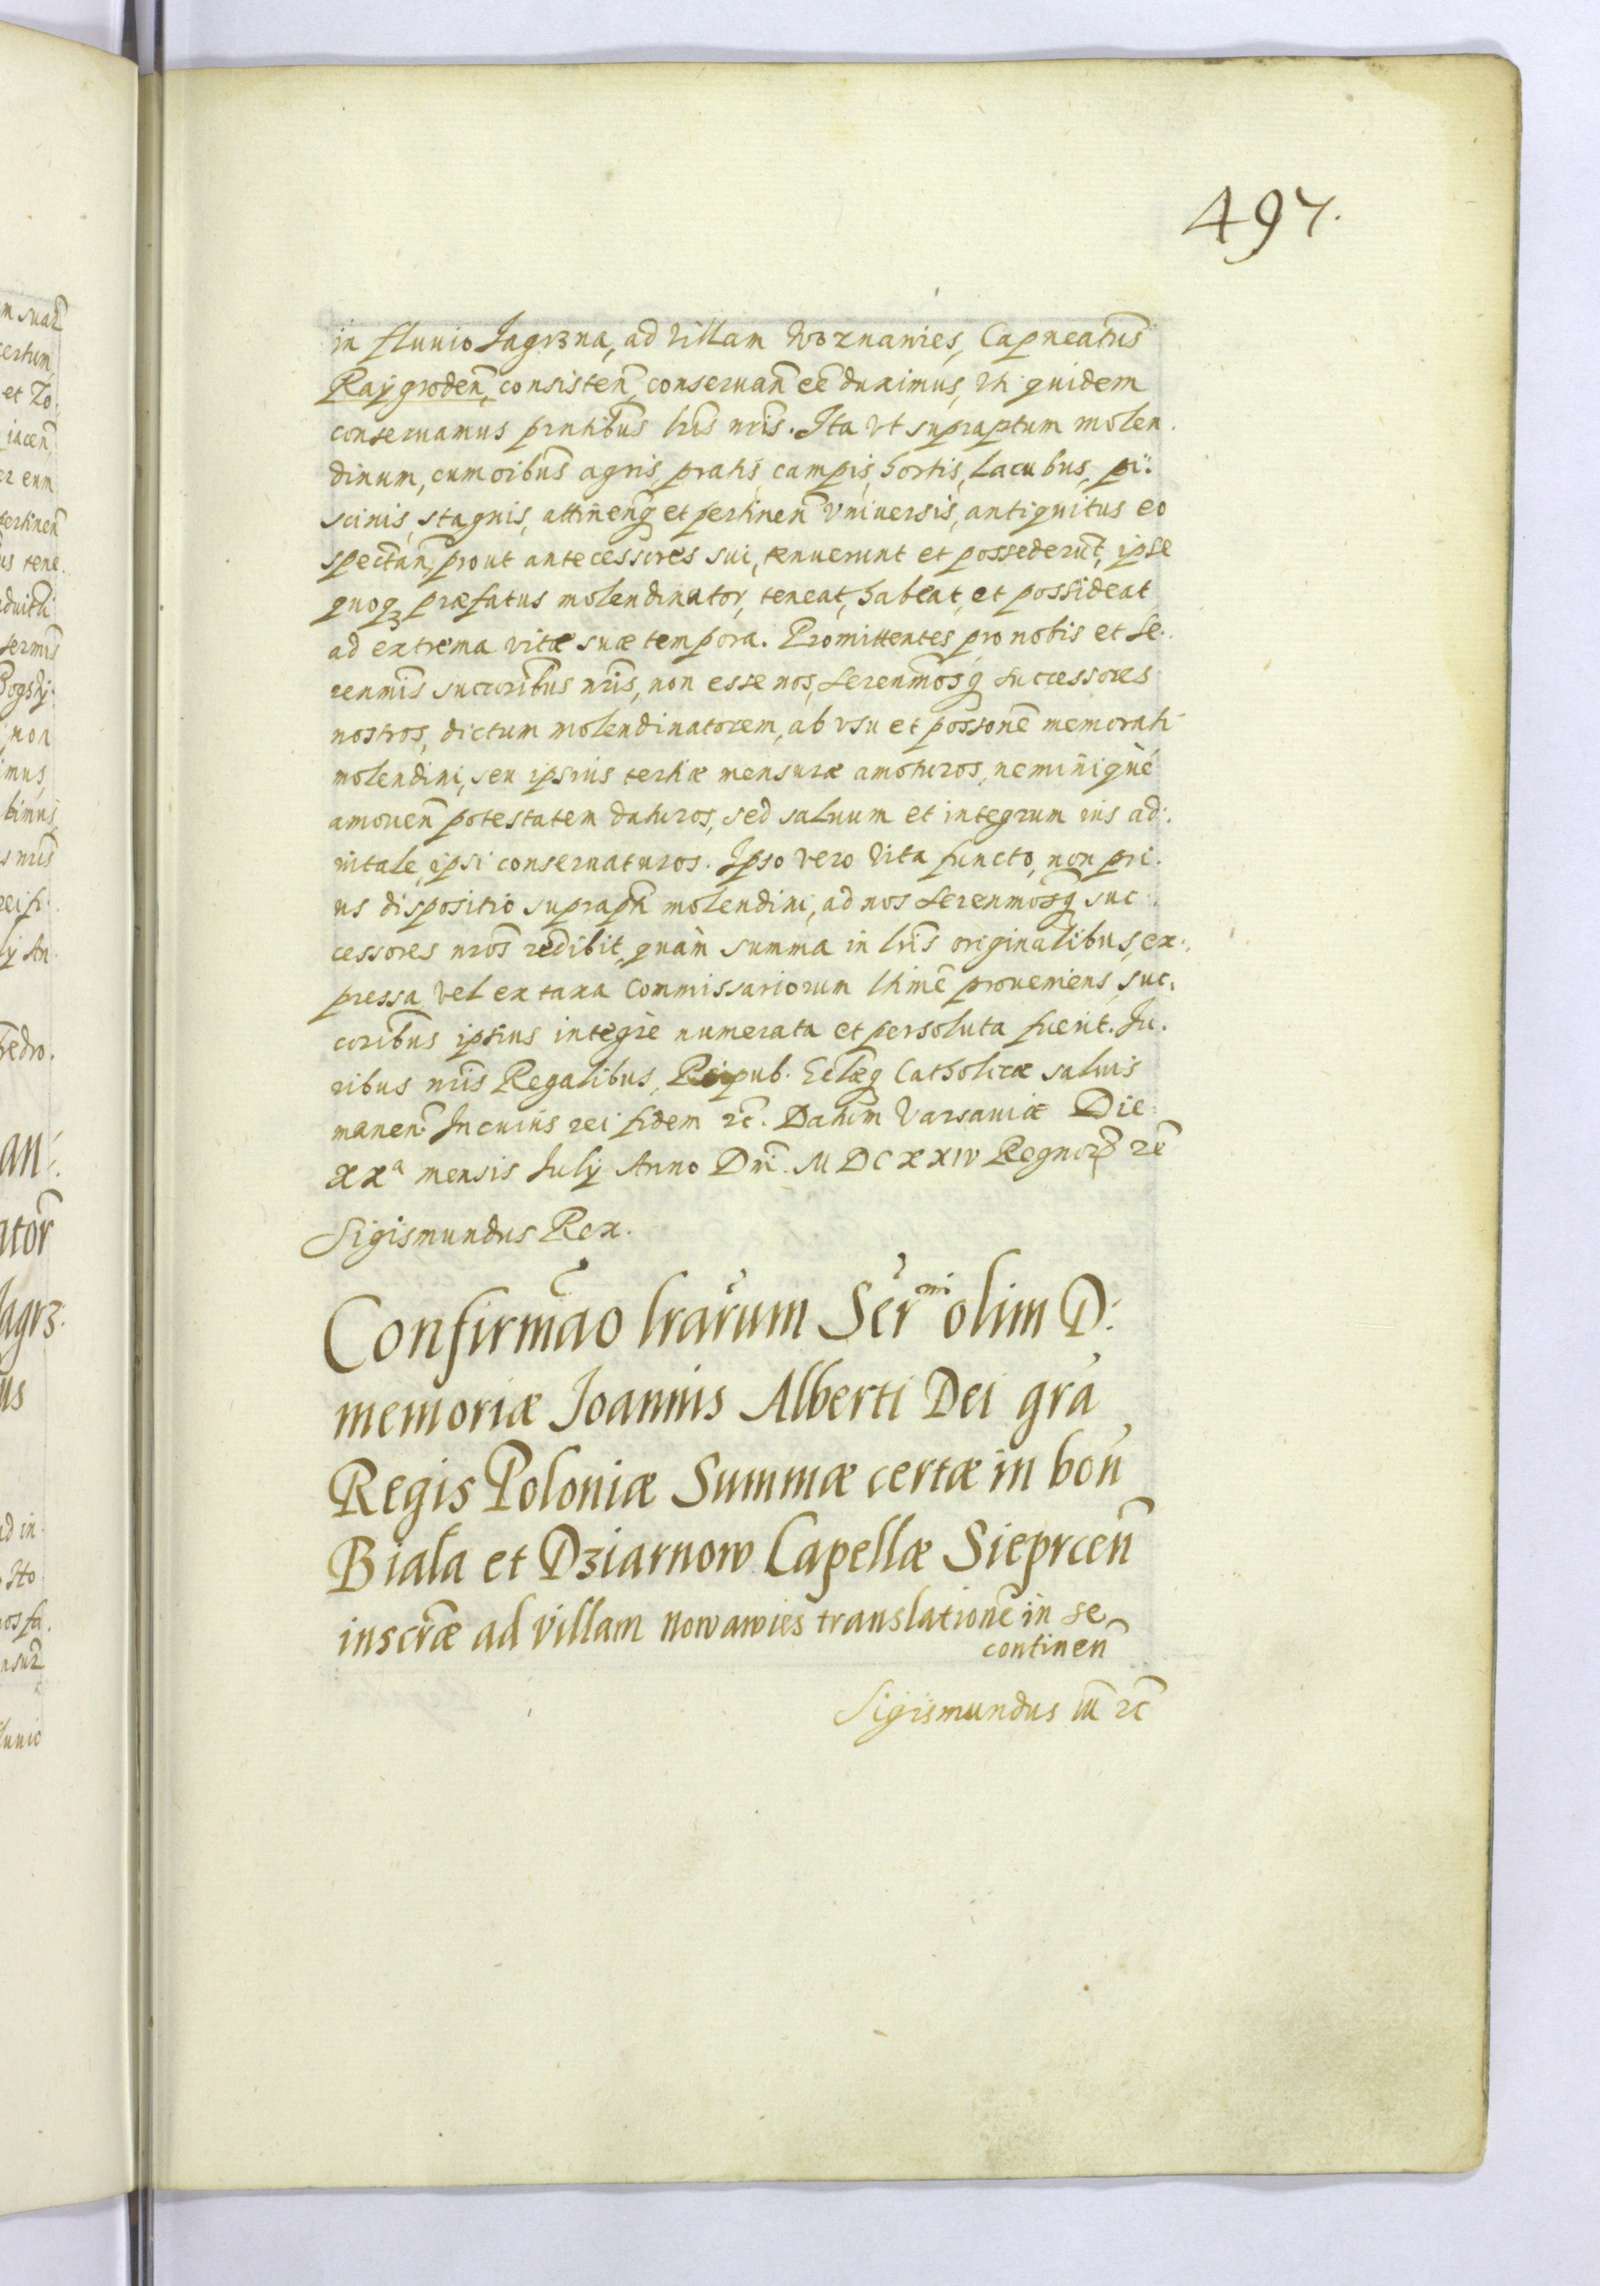 497.
in fluvio Jagrzna, ad villam Woznawies, Capneatus
Raygroden, consisten, conservan ee duximus, Uti quidem
conservamus pntibus lris nris. Ita vt supraptum molen
dinum, cum oibus agris, pratis, campis, hortis, Lacubus, pi
scinis, stagnis, attinenq et pertinen Vniversis, antiquitus eo
spectan, prout antecessores sui, tenuerunt et possederut, ipse
quoq præfatus molendinator, teneat, habeat, et possideat
ad extrema vitæ suæ tempora. Promittentes pro nobis et Se
renmis succoribus nris, non esse nos, Serenmosq successores
nostros, dictum molendinatorem, ab vsu et possone memorati
molendini, seu ipsius tertiæ mensuræ amoturos, neminiquè
amoven potestatem daturos, sed salvum et integrum ius ad
vitale, ipsi conservaturos. Ipso vero vita functo, non pri
us dispositio suprapti molendini, ad nos Serenmosq suc
cessores nros redibit, quàm summa in lris originalibus, ex
pressa, vel ex taxa Commissariorum ltime proveniens, suc
coribus ipsius integrè numerata et persoluta fuerit. Iu
ribus nris Regalibus, Reipub. Eclæq Catholicæ salvis
manen. In cuius rei fidem rc. Datum Varsaviæ Die
XXa mensis Iulij Anno Dni. MDCXXIV Regnor re
Sigismundus Rex.
Confirmao lrarum Sermi olim D:
memoriæ Joannis Alberti Dei gra
Regis Poloniæ Summæ certæ in bon
Biala et Dziarnow Capellæ Sieprcen
inscræ ad villam Nowawies translatione in se
continen
Sigismundus III rc